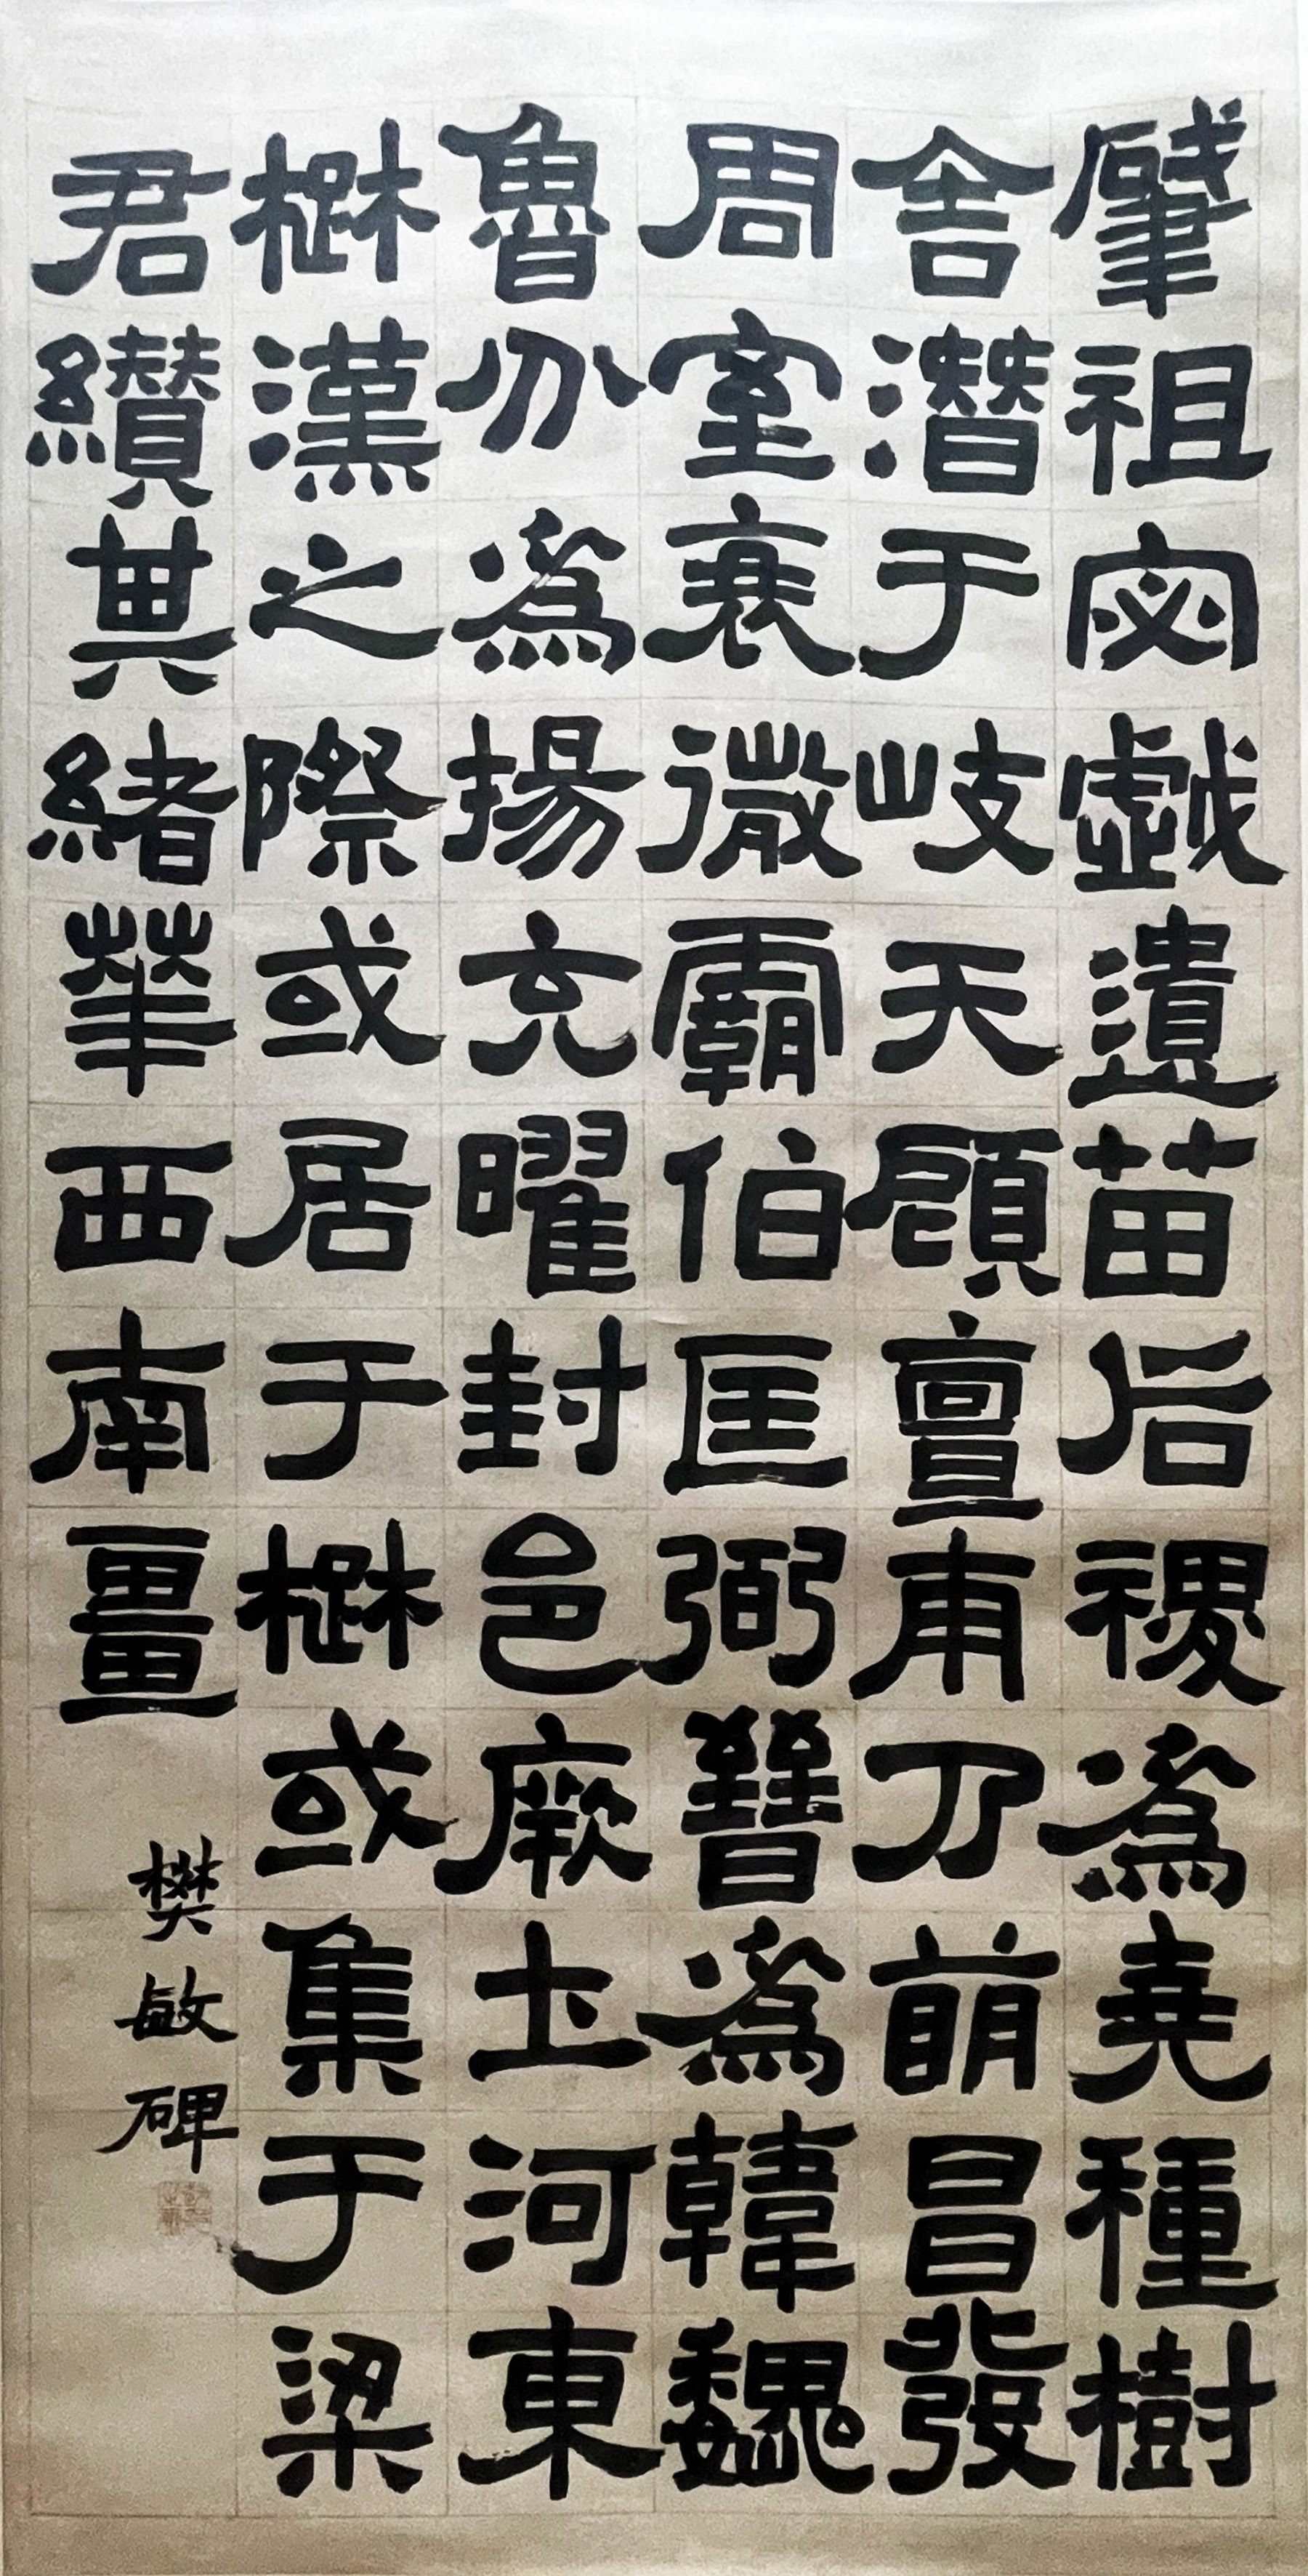 肇祖宓戲遺苗后稷為堯種樹
舍潛于岐天顧亶甫乃萌昌發
周室衰微霸伯匡弼晉為韓魏
魯分為揚充曜封邑厥土河東
楚漢之際或居于楚或集于梁
君纘其緒華西南畺
樊敏碑